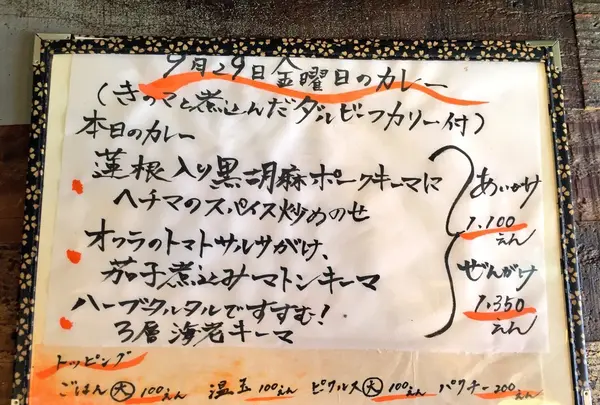 9月29日金曜日のカレー
(きのこと煮込んだダルビーフカリー付)
本日のカレー
蓮根入り黒胡麻ポークキーマに
ヘチマのスパイス炒めのせ
オクラのトマトサルサがけ、
茄子煮込みマトンキーマ
ハーブタルタルですすむ!
3層海老キーマ
あいがけ
1,100
えん
ぜんがけ
1,350
えん
トッピング
ごはん大100えん 温玉100えん ピクルス大100えん パクチー200えん